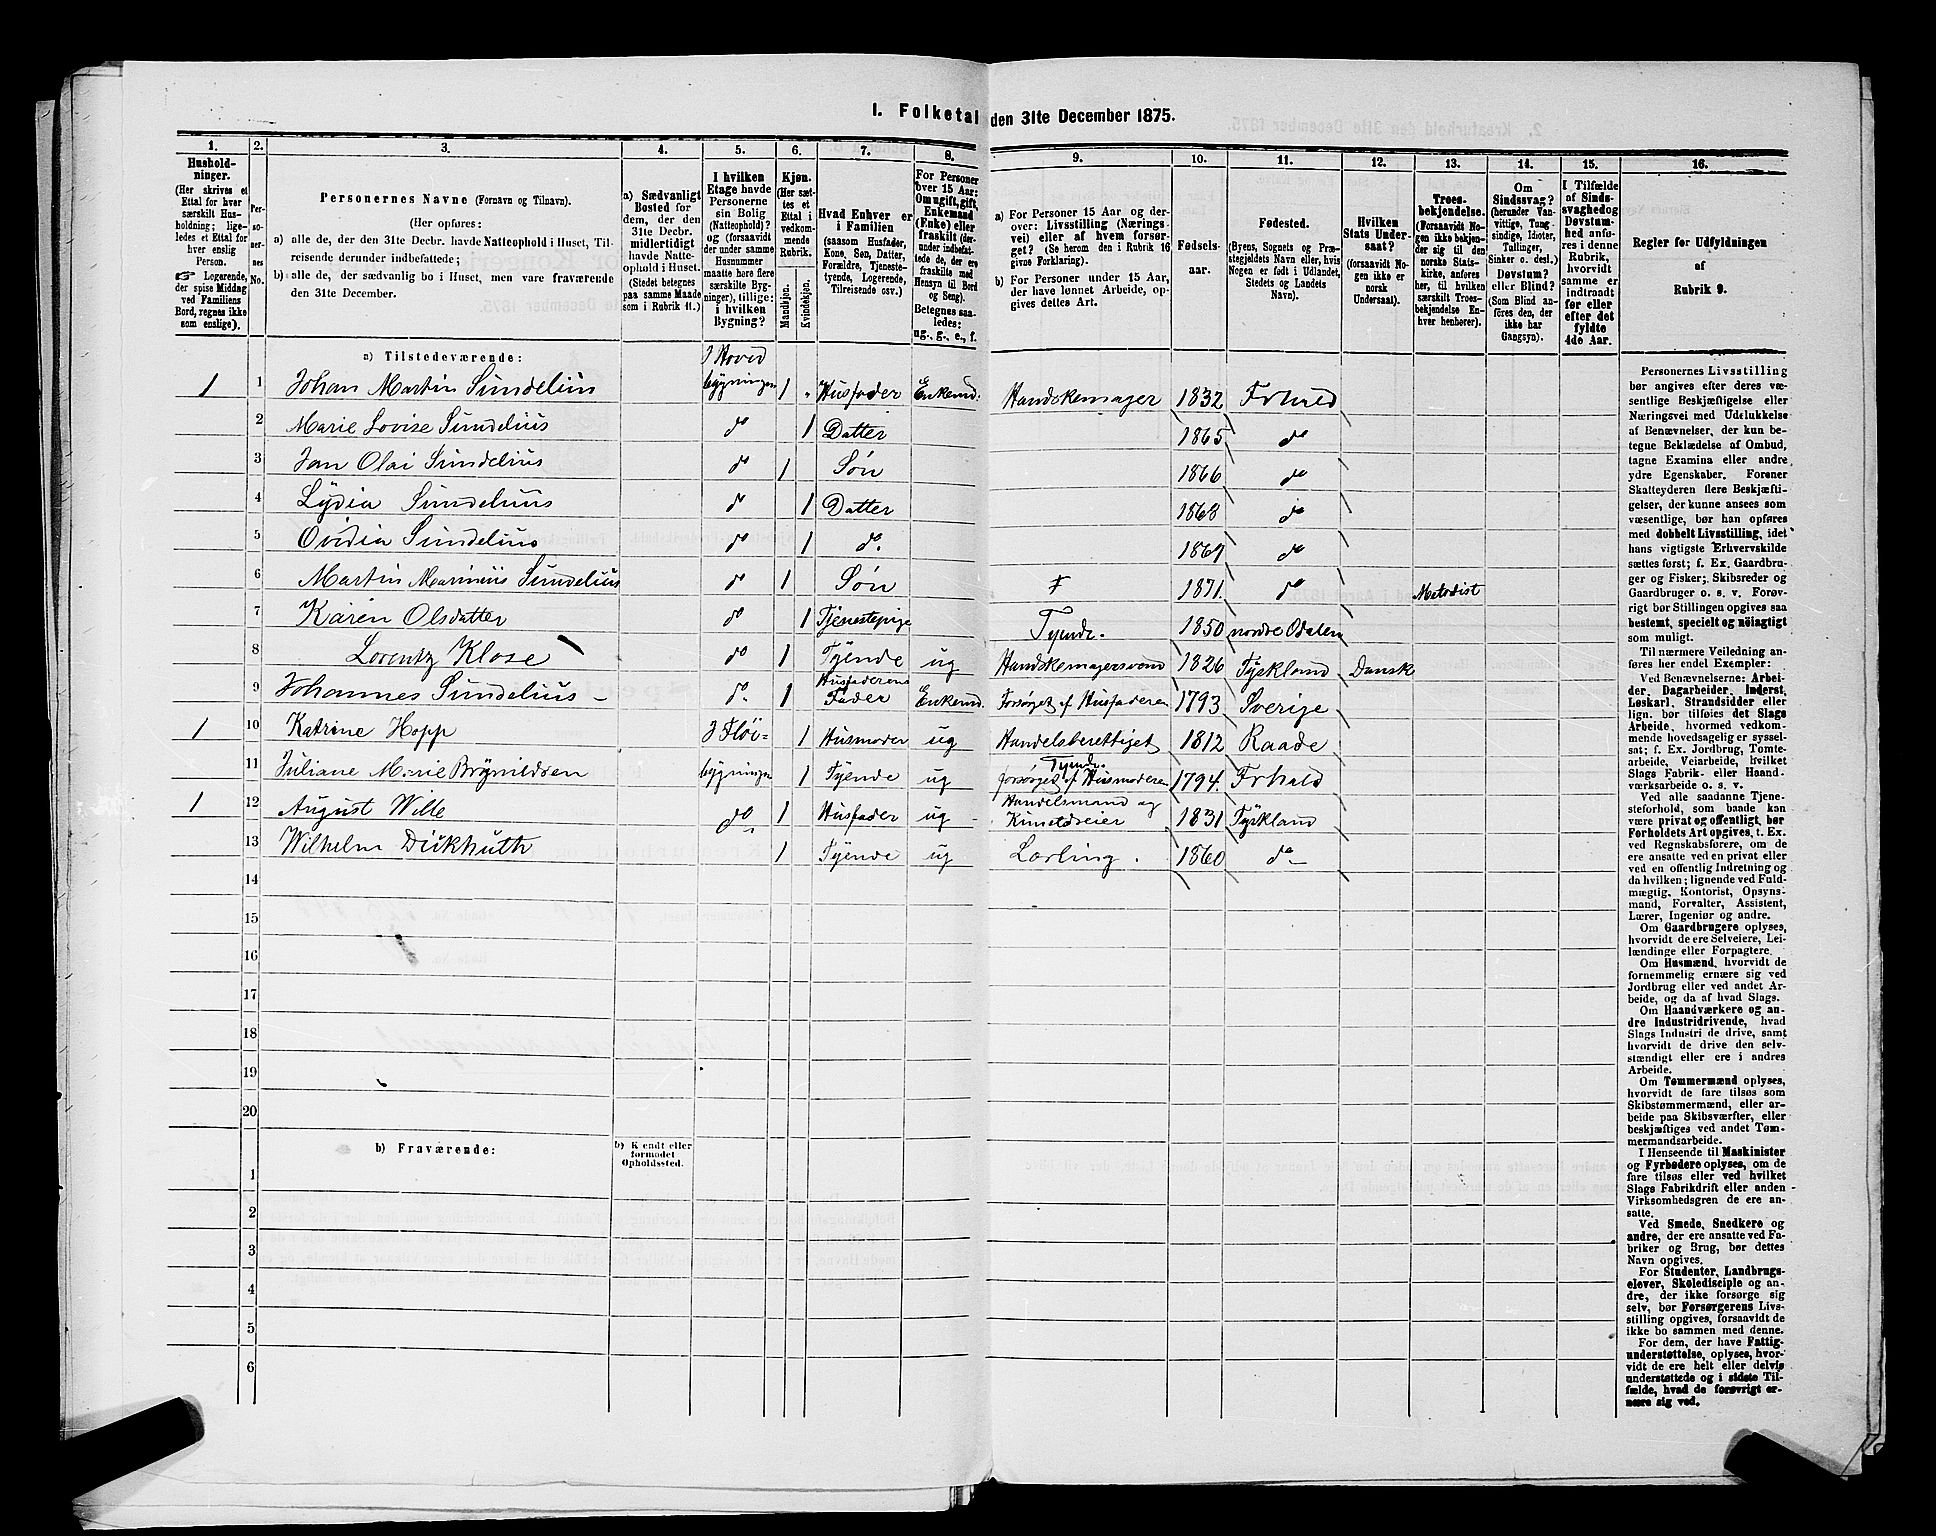 I. Folketal den 31te December 1875.
1. 2. 3. 4. 5. 6. 7. 8. 9. 10. 11. 12. 13. 14. 15. 16.
Husholdninger.
(Her skrives et
Ettal for hver
særskilt Husholdning;
ligeledes et Ettal for
hver enslig
Person.
☞ Logerende,
der spise Middag
ved Familiens
Bord, regnes ikke
som enslige).
Personernes No.
Personernes Navne (Fornavn og Tilnavn).
(Her opføres:
a) alle de, der den 31te Decbr. havde Natteophold i Huset, Tilreisende derunder indbefattede;
b) alle de, der sædvanlig bo i Huset, men vare fraværende
den 31te December.
a) Sædvanligt
Bosted for
dem, der den
31te Decbr.
midlertidigt
havde Natteophold i Huset.
(Stedet betegnes
paa samme Maade
som i Rubrik 11.)
I hvilken
Etage havde
Personerne
sin Bolig
(Natteophold)?
og (forsaavidt
der under samme
Husnummer
maatte høre flere
særskilte Bygninger), tillige:
i hvilken
Bygning?
Kjøn.
(Her sættes et
Ettal i
vedkommende
Rubrik.
Mandkjøn.
Kvindekjøn.
Hvad Enhver er
i Familien
(saasom Husfader,
Kone, Søn, Datter,
Forældre, Tjenestetyende, Logerende,
Tilreisende osv.)
For Personer
over 15 Aar:
Om ugift, gift,
Enkemand
(Enke) eller
fraskilt (derunder indbefattede de, der ere
fraskilte med
Hensyn til Bord
og Seng).
Betegnes saaledes:
ug., g., e., f.
a) For Personer 15 Aar og derover: Livsstilling (Næringsvei) eller af hvem forsørget? (Se herom den i Rubrik 16
givne Forklaring).
b) For Personer under 15 Aar,
der have lønnet Arbeide, opgives dettes Art.
Fødselsaar.
Fødested.
(Byens, Sognets og Præstegjeldets Navn, eller, hvis
Nogen er født i Udlandet,
Stedets og Landets
Navn).
Hvilken
Stats Undersaat?
(forsaavidt Nogen ikke er
norsk
Undersaat).
Troesbekjendelse.
(Forsaavidt Nogen ikke bekjender sig til den
norske Statskirke, anføres
her, til hvilken
særskilt Troesbekjendelse Enhver henhører).
Om
Sindssvag?
(herunder Vanvittige, Tungsindige, Idioter,
Tullinger,
Sinker o. desl.)
Døvstum?
eller Blind?
(Som Blind anføres den, der
ikke har
Gangsyn).
I Tilfælde
af Sindssvaghed og
Døvstumhed anføres i denne
Rubrik,
hvorvidt
samme er
indtraadt
før eller
efter det
fyldte
4de Aar.
Regler for Udfyldningen
af
Rubrik 9.
a) Tilstedeværende:
1 1 Johan Martin Sundelius I Hovedbygningen 1 Husfader Enkemd. Handskemager 1832 Frhald
2 Marie Lovise Sundelius do 1 Datter 1865 do
3 Jan Olai Sundelius do 1 Søn 1866 do
4 Lydia Sundelius do 1 Datter 1868 do
5 Ovidia Sundelius do 1 do. 1869 do
6 Martin Marinius Sundelius do 1 Søn 1871. do Metodist
7 Karen Olsdatter do 1 Tjenestepige Tyende. 1850 nordre Odalen
8 Lorentz Klose do 1 Tyende ug Handskemagersvend 1826 Tyskland Dansk
9 Johannes Sundelius do. 1 Husfaderens Fader Enkemd. Forsørget af Husfaderen 1793 Sverige
1 10 Katrine Hopp I Fløi= 1 Husmoder ug Handelsberettiget 1812 Raade
11 Juliane Marie Brynildsen bygningen 1 Tyende ug Tyende. forsørget af Husmoderen 1794. Frhald
1 12 August Wille do 1 Husfader ug Handelsmand og Kunstdreier 1831 Tyskland
13 Wilhelm Dickhuth 1 Tyende ug Lærling. 1860 do
14
15
16
17
18
19
20
b) Fraværende:
b) Kjendt eller
formodet
Opholdssted.
1
2
3
4
5
6
Personernes Livsstilling
bør angives efter deres væsentlige Beskjæftigelse eller
Næringsvei med Udelukkelse
af Benævnelser, der kun betegne Beklædelse af Ombud,
tagne Examina eller andre
ydre Egenskaber. Forener
Skatteyderen flere Beskjæftigelser, der kunne ansees som
væsentlige, bør han opføres
med dobbelt Livsstilling, idet
hans vigtigste Erhvervskilde
sættes først; f. Ex. Gaardbruger og Fisker; Skibsreder og
Gaardbruger o. s. v. Forøvrigt bør Stillingen opgives saa
bestemt, specielt og nöiagtigt
som muligt.
Til nærmere Veiledning anføres her endel Exempler:
Ved Benævnelserne: Arbeider, Dagarbeider, Inderst,
Løskarl, Strandsidder eller
lign. bør tilføies det Slags
Arbeide, hvormed vedkommende hovedsagelig er sysselsat; f. Ex. Jordbrug, Tomtearbeide, Veiarbeide, hvilket
Slags Fabrik- eller Haandværksarbeide o. s. v.
Ved alle saadanne Tjenesteforhold, som baade kan
være privat og offentligt, bør
Forholdets Art opgives, t. Ex.
ved Regnskabsførere, om de
ere ansatte ved en privat eller
ved en offentlig Indretning og
da hvilken; lignende ved Fuldmægtig, Kontorist, Opsynsmand, Forvalter, Assistent,
Lærer, Ingeniør og andre.
Om Gaardbrugere oplyses,
hvorvidt de ere Selveiere, Leilændinge eller Forpagtere.
Om Husmænd, hvorvidt de
fornemmelig ernære sig ved
Jordbrug eller ved andet Arbeide, og da af hvad Slags.
Om Haandværkere og andre Industridrivende, hvad
Slags Industri de drive, samt
hvorvidt de drive den selvstændigt eller ere i andres
Arbeide.
Om Tømmermænd oplyses,
hvorvidt de fare tilsøs som
Skibstømmermænd, eller arbeide paa Skibsværfter, eller
beskjæftiges ved andet Tømmermandsarbeide.
I Henseende til Maskinister
og Fyrbødere oplyses, om de
fare tilsøs eller ved hvilket
Slags Fabrikdrift eller anden
Virksomhedsgren de ere ansatte.
Ved Smede, Snedkere og
andre, der ere ansatte ved Fabriker og Brug, bør dettes
Navn opgives.
For Studenter, Landbrugselever, Skoledisciple og andre, der ikke forsørge sig
selv, bør Forsørgerens Livsstilling opgives, forsaavidt de
ikke bo sammen med denne.
For dem, der have Fattigunderstøttelse, oplyses, hvorvidt de ere helt eller delvis
understøttede og i sidste Tilfælde, hvad de forøvrigt ernære sig ved.